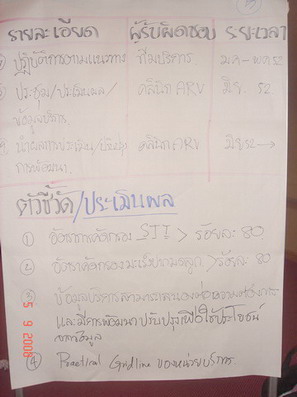 รายละเอียด ผู้รับผิดชอบ ระยะเวลา
ปฏิบัติการตามแนวทาง ทีมบริการ ม.ค - พ.ค 52
ประชุม/ประเมินผล/ คลินิก ARV มิ.ย. 52
ข้อมูลบริการ
คลินิก ARV มิ.ย 52 →
การพัฒนา
ตัวชี้วัด/ประเมินผล
① อัตราการคัดกรอง STI > ร้อยละ 80
② อัตราคัดกรองมะเร็งปากมดลูก > ร้อยละ 80
③ ข้อมูลบริการสามารถตอบสนองต่อ
และมีการพัฒนา ปรับปรุงเพื่อใช้ประโยชน์
ข้อมูล
④ Practical Guidline ของหน่วยบริการ
5 9 2008